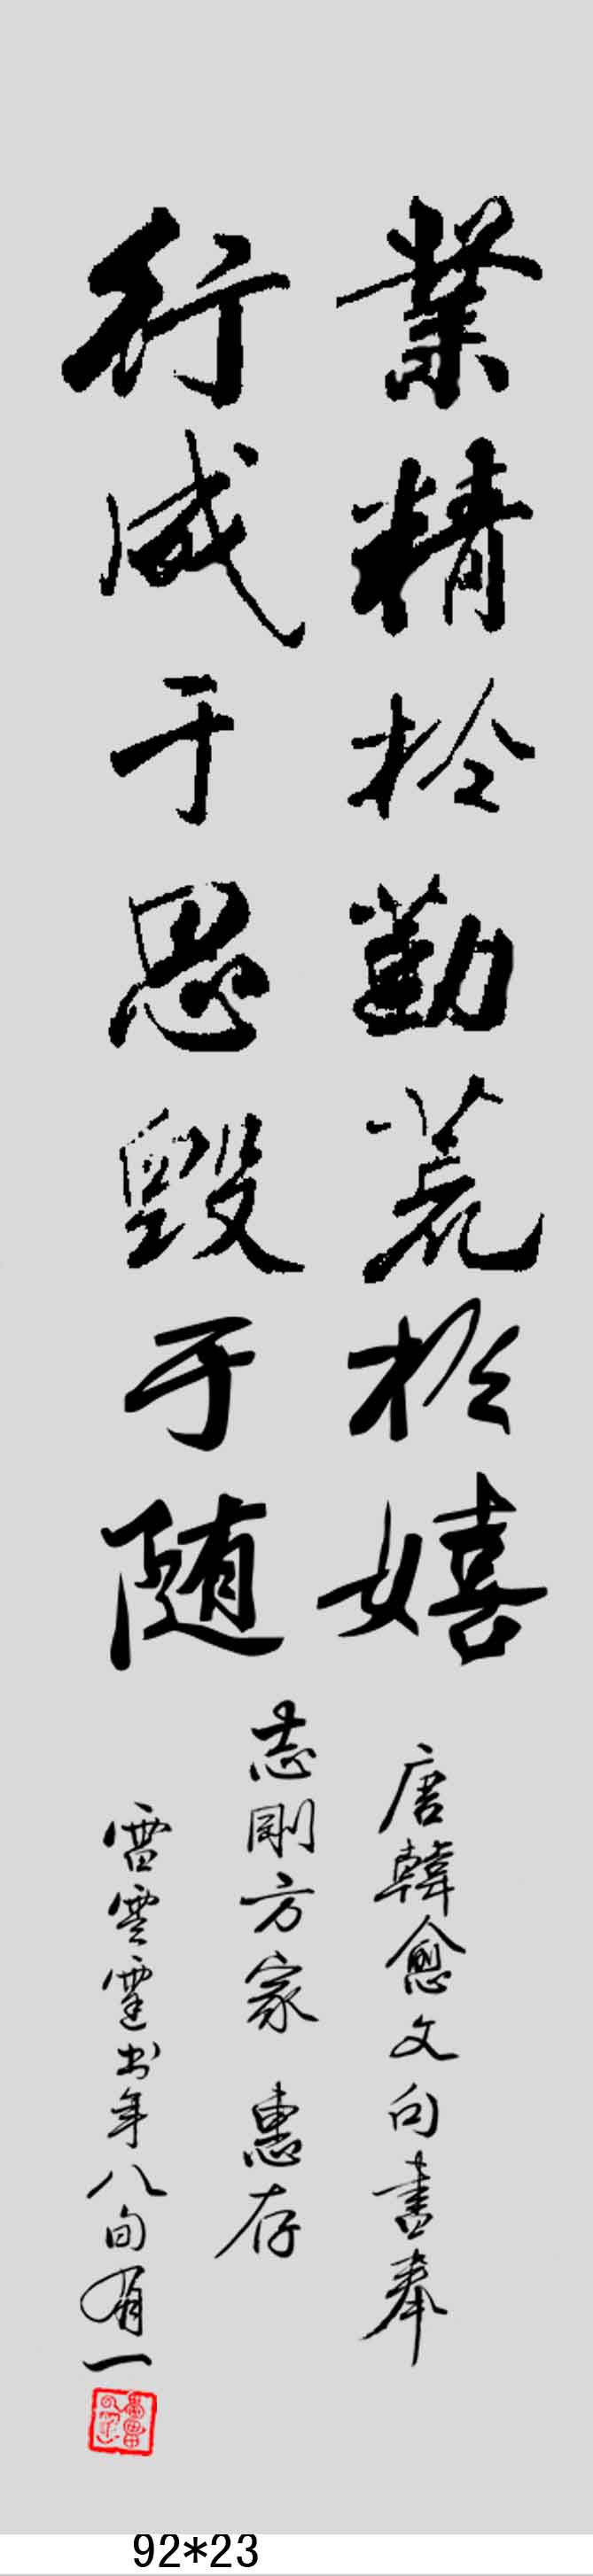 業精於勤荒於嬉
行成于思毁于随
唐韓愈文句書奉
志剛方家 惠存
雷雲霆书年八旬有一
92*23